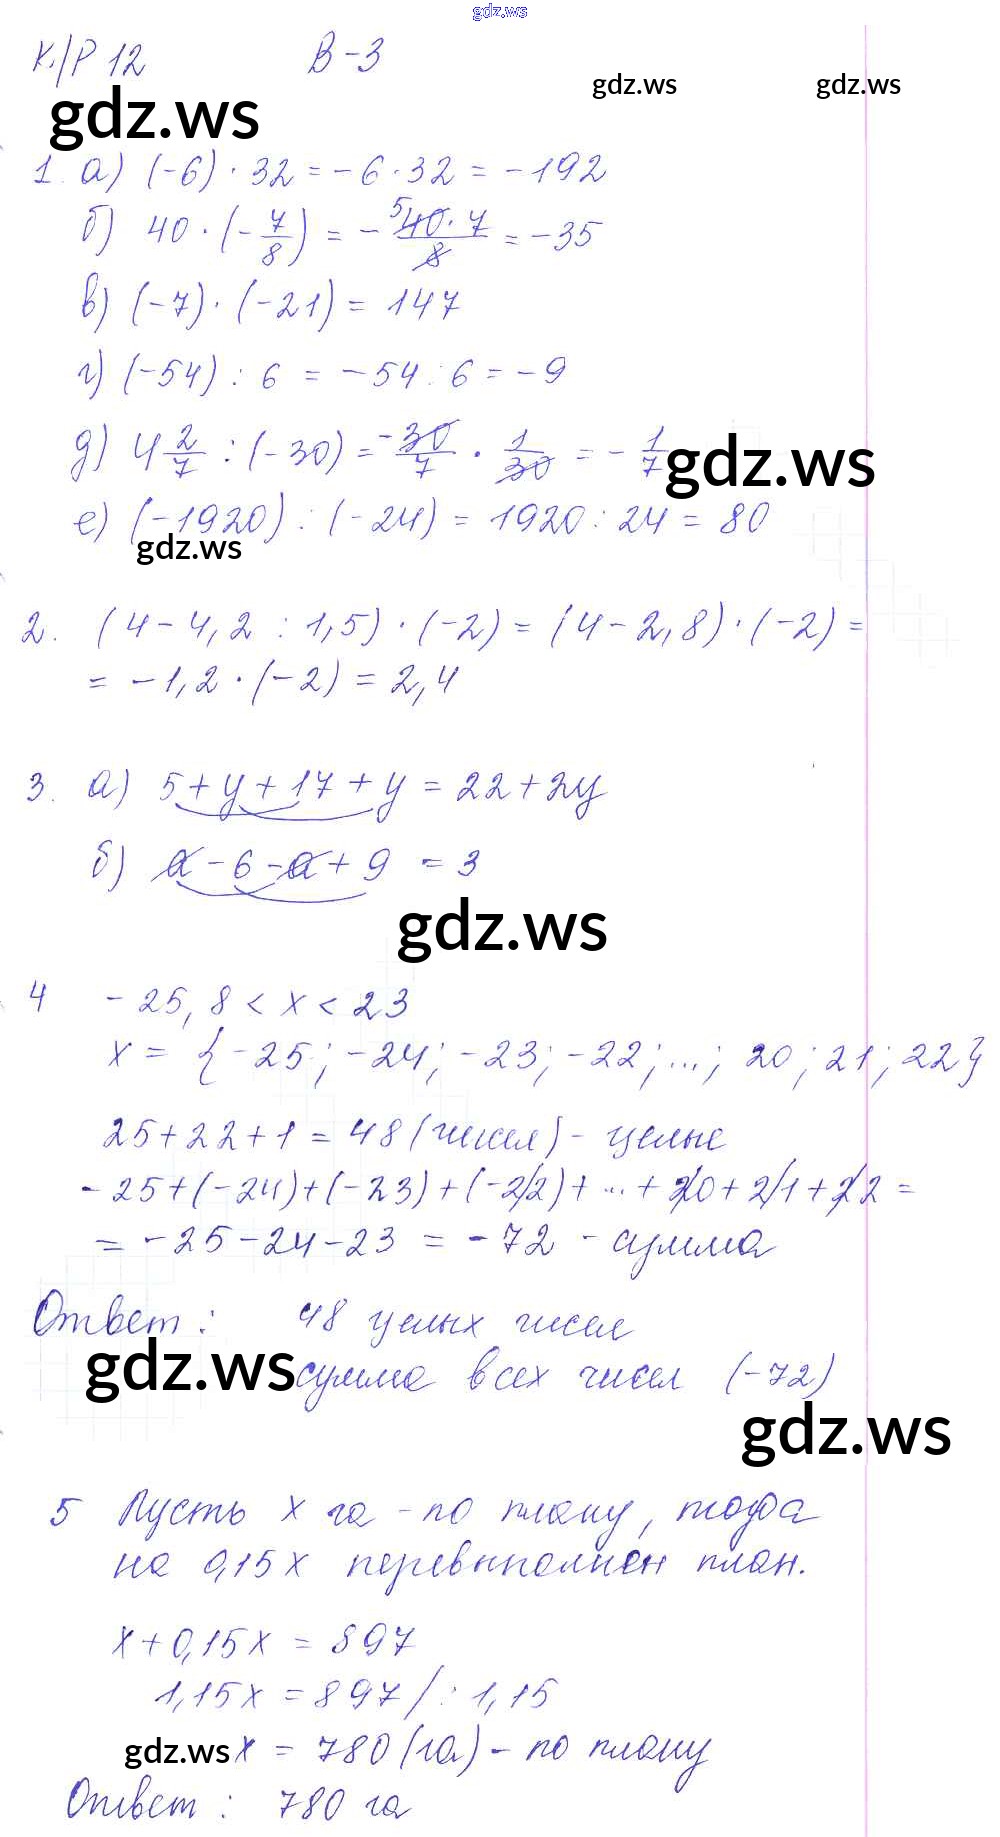 gdz.ws
К/Р 12 В-3
gdz.ws gdz.ws
gdz.ws
1. а) (-6) · 32 = -6 · 32 = -192
б) 40 · (-7/8) = - 5 40 · 7/8 = -35
в) (-7) · (-21) = 147
г) (-54) : 6 = -54 : 6 = -9
д) 4 2/7 : (-30) = -30/7 · 1/30 = -1/7
gdz.ws
е) (-1920) : (-24) = 1920 : 24 = 80
gdz.ws
2. (4 - 4,2 : 1,5) · (-2) = (4 - 2,8) · (-2) =
= -1,2 · (-2) = 2,4
3. а) 5 + y + 17 + y = 22 + 2y
б) a - 6 - a + 9 = 3
gdz.ws
4 -25,8 < x < 23
x = {-25; -24; -23; -22; ...; 20; 21; 22}
25 + 22 + 1 = 48 (чисел) - целые
-25 + (-24) + (-23) + (-22) + ... + 20 + 21 + 22 =
= -25 - 24 - 23 = -72 - сумма
Ответ: 48 целых чисел
gdz.ws
сумма всех чисел (-72)
gdz.ws
5 Пусть x га - по плану, тогда
на 0,15x перевыполнен план.
x + 0,15x = 897
1,15x = 897 / : 1,15
gdz.ws x = 780 (га) - по плану
Ответ: 780 га